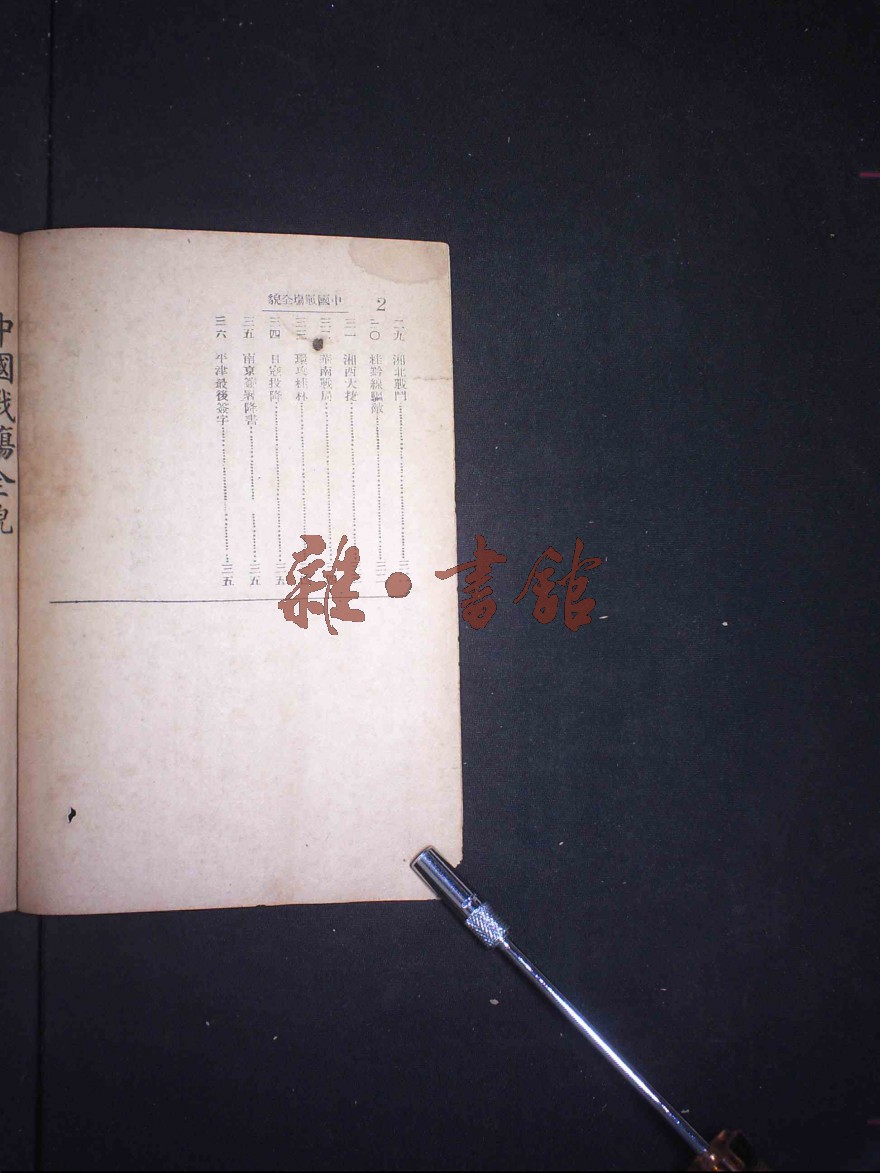 2
中國戰場全貌
二九 湘北戰鬥 三
三〇 桂黔線驅敵 三
三一 湘西大捷 三
三二 華南戰局
三三 環攻桂林
三四 日寇投降 三五
三五 南京簽署降書 三五
三六 平津最後簽字 三五
中國戰場全貌
雜·書館